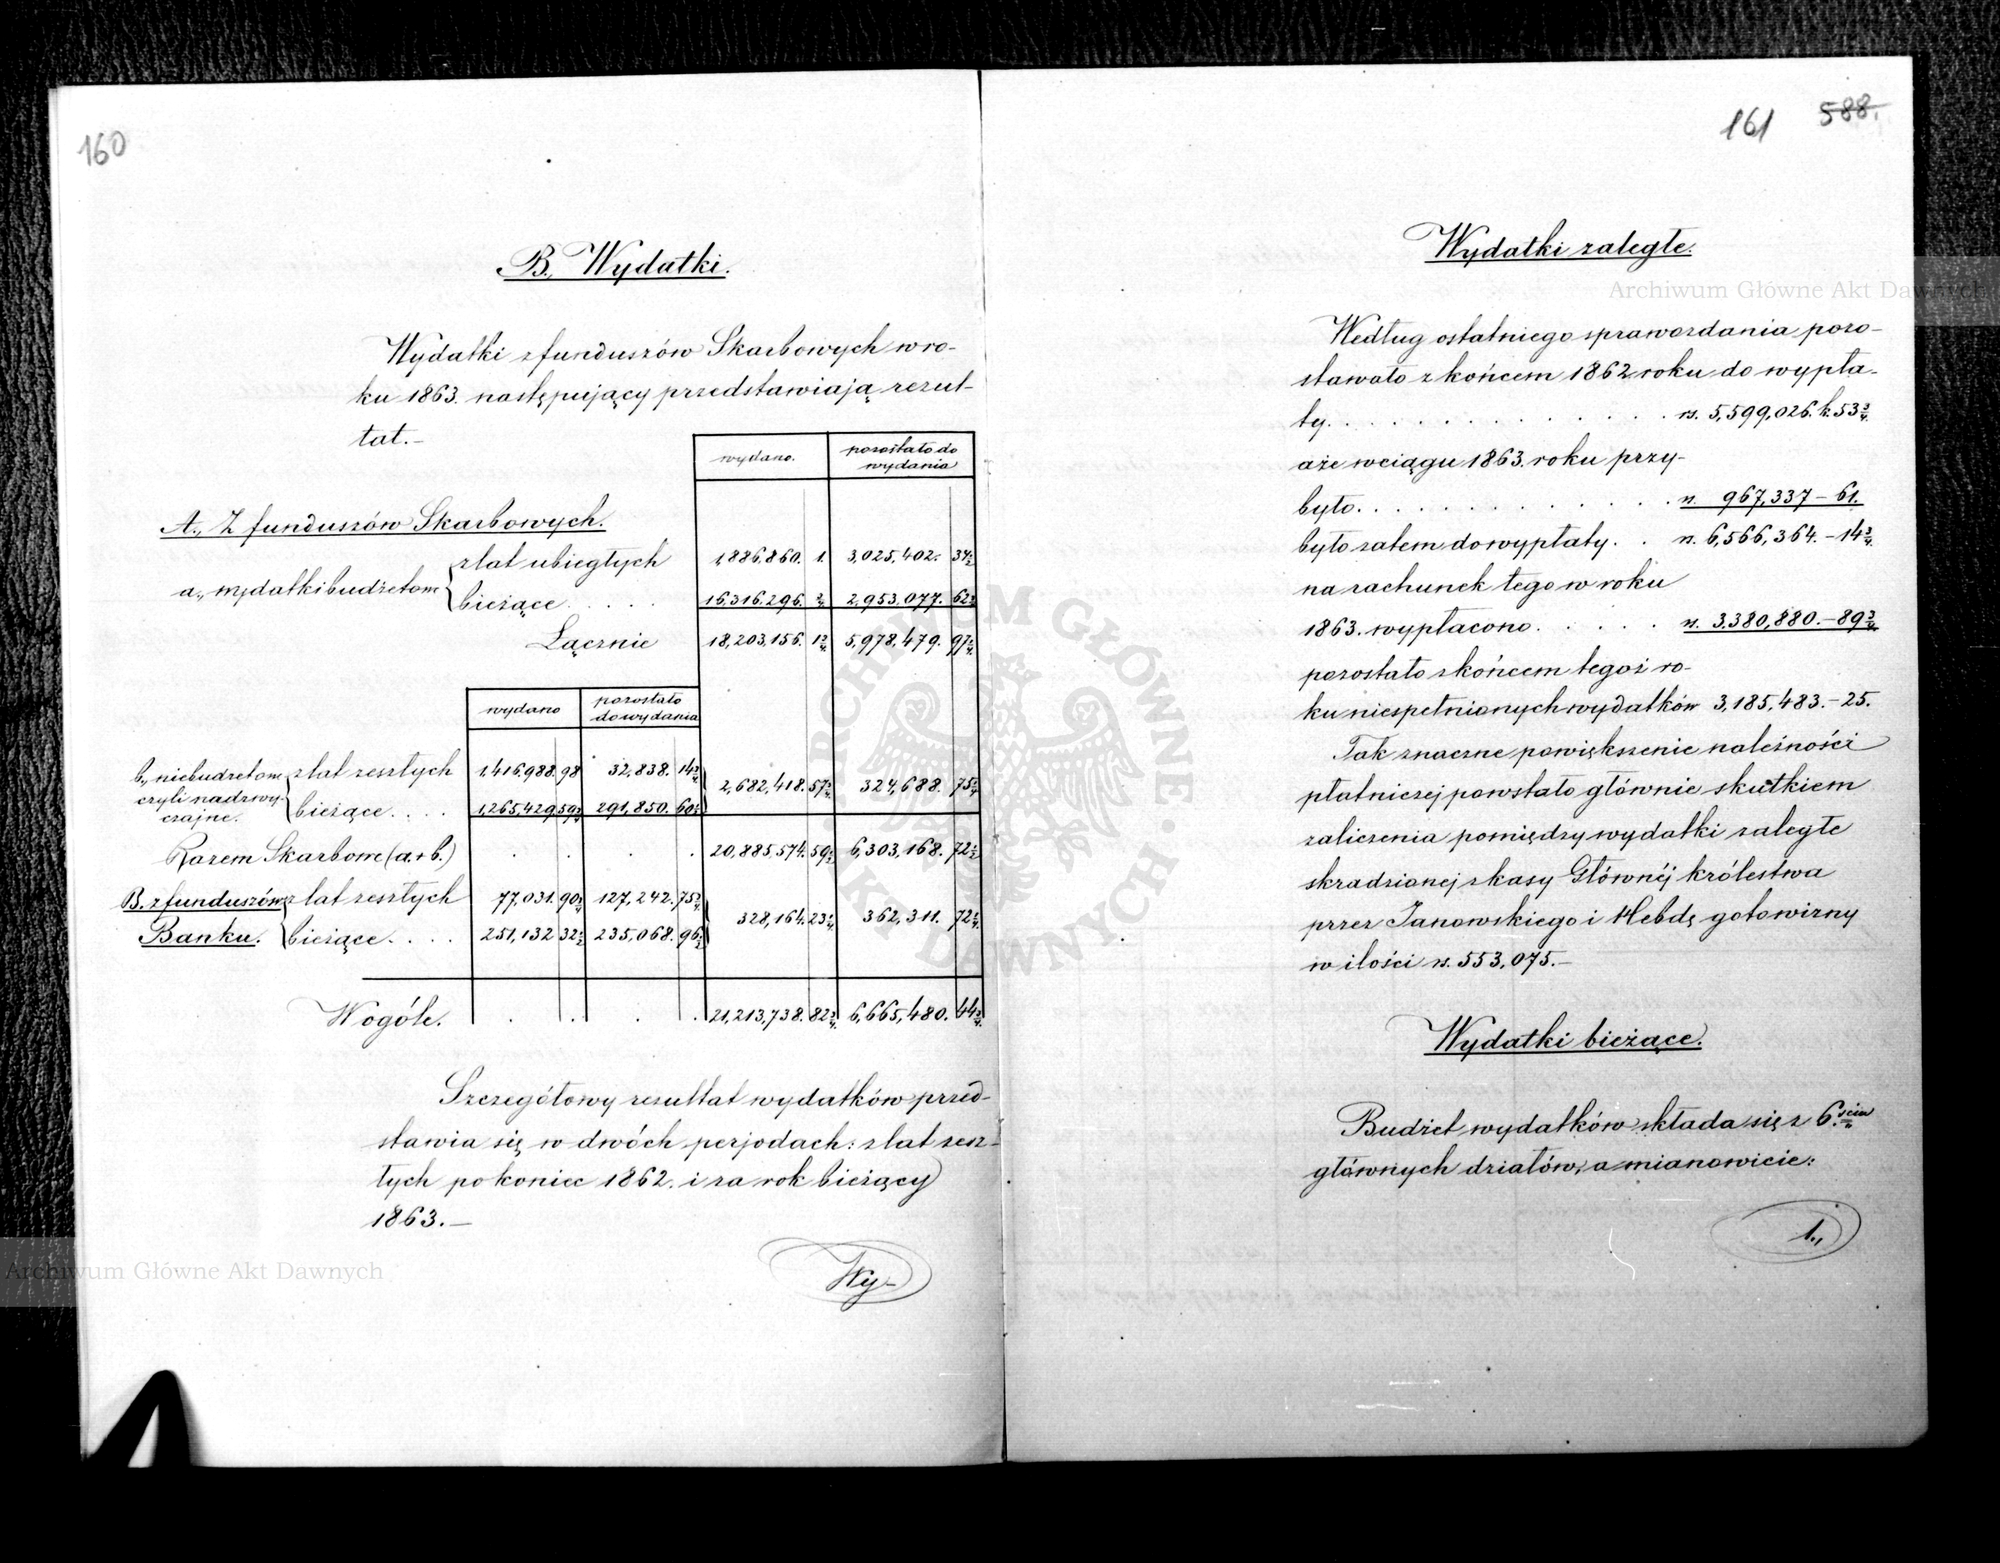 160
B. Wydatki.
Wydatki z funduszów Skarbowych w ro-
ku 1863. następujący przedstawiają rezul-
tat.-
wydano. pozostało do wydania
A., Z funduszów Skarbowych.
a., wydatki budżetom
z lat ubiegłych 1,886,860. 1. 3,025,402. 34½
bieżące . . . . 16,316,296. ¾ 2,953,077. 62¾
Łącznie 18,203,156. 1¾ 5,978,479. 97¼
wydano pozostało do wydania
b., niebudżetom czyli nadzwy-czajne.
z lat zeszłych 1,416,988. 98 32,838. 14¾
bieżące . . . . 1,265,429 59¾ 291,850. 60½
2,682,418. 57¾ 324,688. 75¼
Razem Skarbowe (a+b.) . . . . 20,885,574. 59½ 6,303,168. 72½
B. z funduszów Banku.
z lat zeszłych 77,031. 90¾ 127,242. 75¾
bieżące . . . . 251,132 32½ 235,068. 96½
328,164. 23¼ 362,311. 72¼
Wogóle. . . . . 21,213,738. 82¾ 6,665,480. 44¾
Szczegółowy rezultat wydatków przed-
stawia się w dwóch perjodach: z lat zesz-
łych po koniec 1862. i za rok bieżący
1863.—
Wy-
161 588.
Wydatki zaległe.
Według ostatniego sprawozdania pozo-
stawało z końcem 1862 roku do wypła-
ty . . . . . . . . . . . rs. 5,599,026. k. 53¾
a że w ciągu 1863. roku przy-
było . . . . . . . . . . . rs. 967,337 – 61.
było zatem do wypłaty . . rs. 6,566,364. – 14¾
na rachunek tego w roku
1863. wypłacono . . . . . rs. 3,380,880. – 89¾
pozostało z końcem tegoż ro-
ku niespełnionych wydatków 3,185,483. – 25.
Tak znaczne powiększenie należności
płatniczej powstało głównie skutkiem
zaliczenia pomiędzy wydatki zaległe
skradzionej z kasy Głównéj królestwa
przez Janowskiego i Hebdę gotowizny
w ilości rs. 553,075.—
Wydatki bieżące.
Budżet wydatków składa się z 6.ściu
głównych działów, a mianowicie:
1.,
Archiwum Główne Akt Dawnych
Archiwum Główne Akt Dawnych
ARCHIWUM GŁÓWNE AKT DAWNYCH